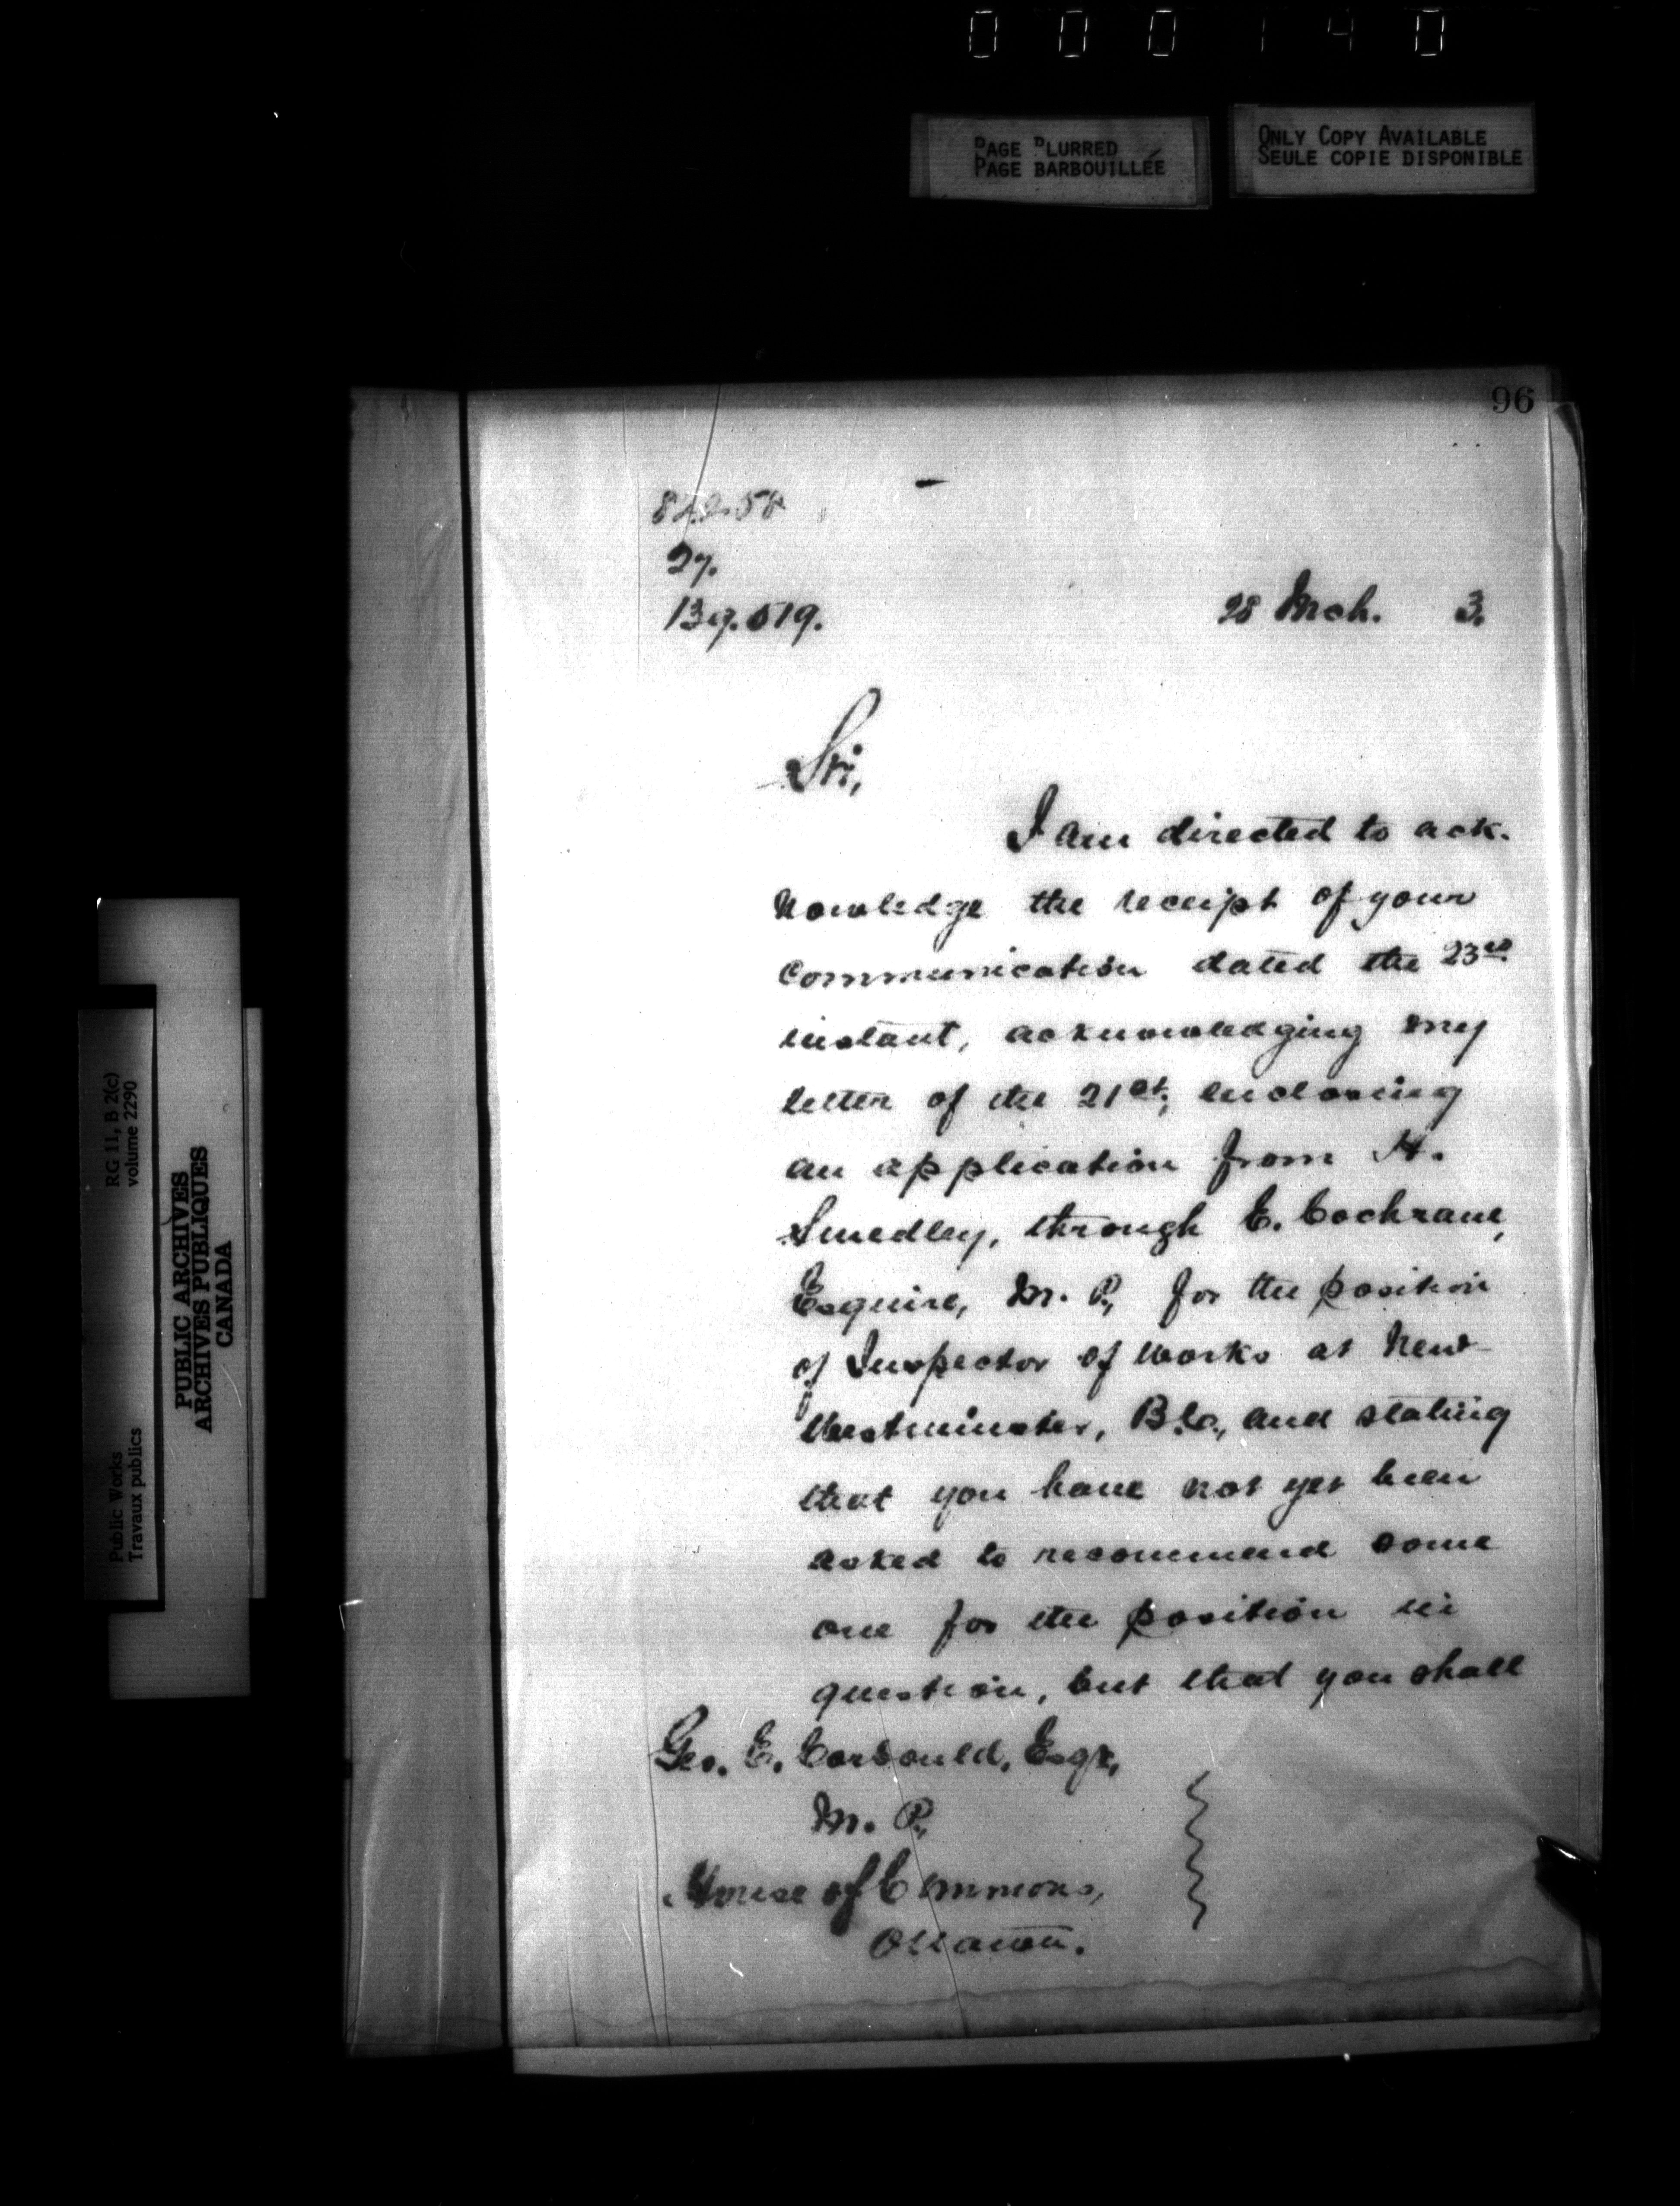 0 0 0 1 4 0
PAGE BLURRED
PAGE BARBOUILLÉE
ONLY COPY AVAILABLE
SEULE COPIE DISPONIBLE
RG 11, B 2(c)
volume 2290
PUBLIC ARCHIVES
ARCHIVES PUBLIQUES
CANADA
Public Works
Travaux publics
96
27.
139.519.
28 Mch. 3.
Sir,
I am directed to ack-
nowledge the receipt of your
communication dated the 23rd
instant, acknowledging my
letter of the 21st, enclosing
an application from H.
Smedley, through E. Cochrane,
Esquire, M. P., for the position
of Inspector of works at New-
Westminster, B.C., and stating
that you have not yet been
asked to recommend some
one for the position in
question, but that you shall
Geo. E. Corbould, Esqr.,
M. P.,
House of Commons,
Ottawa.